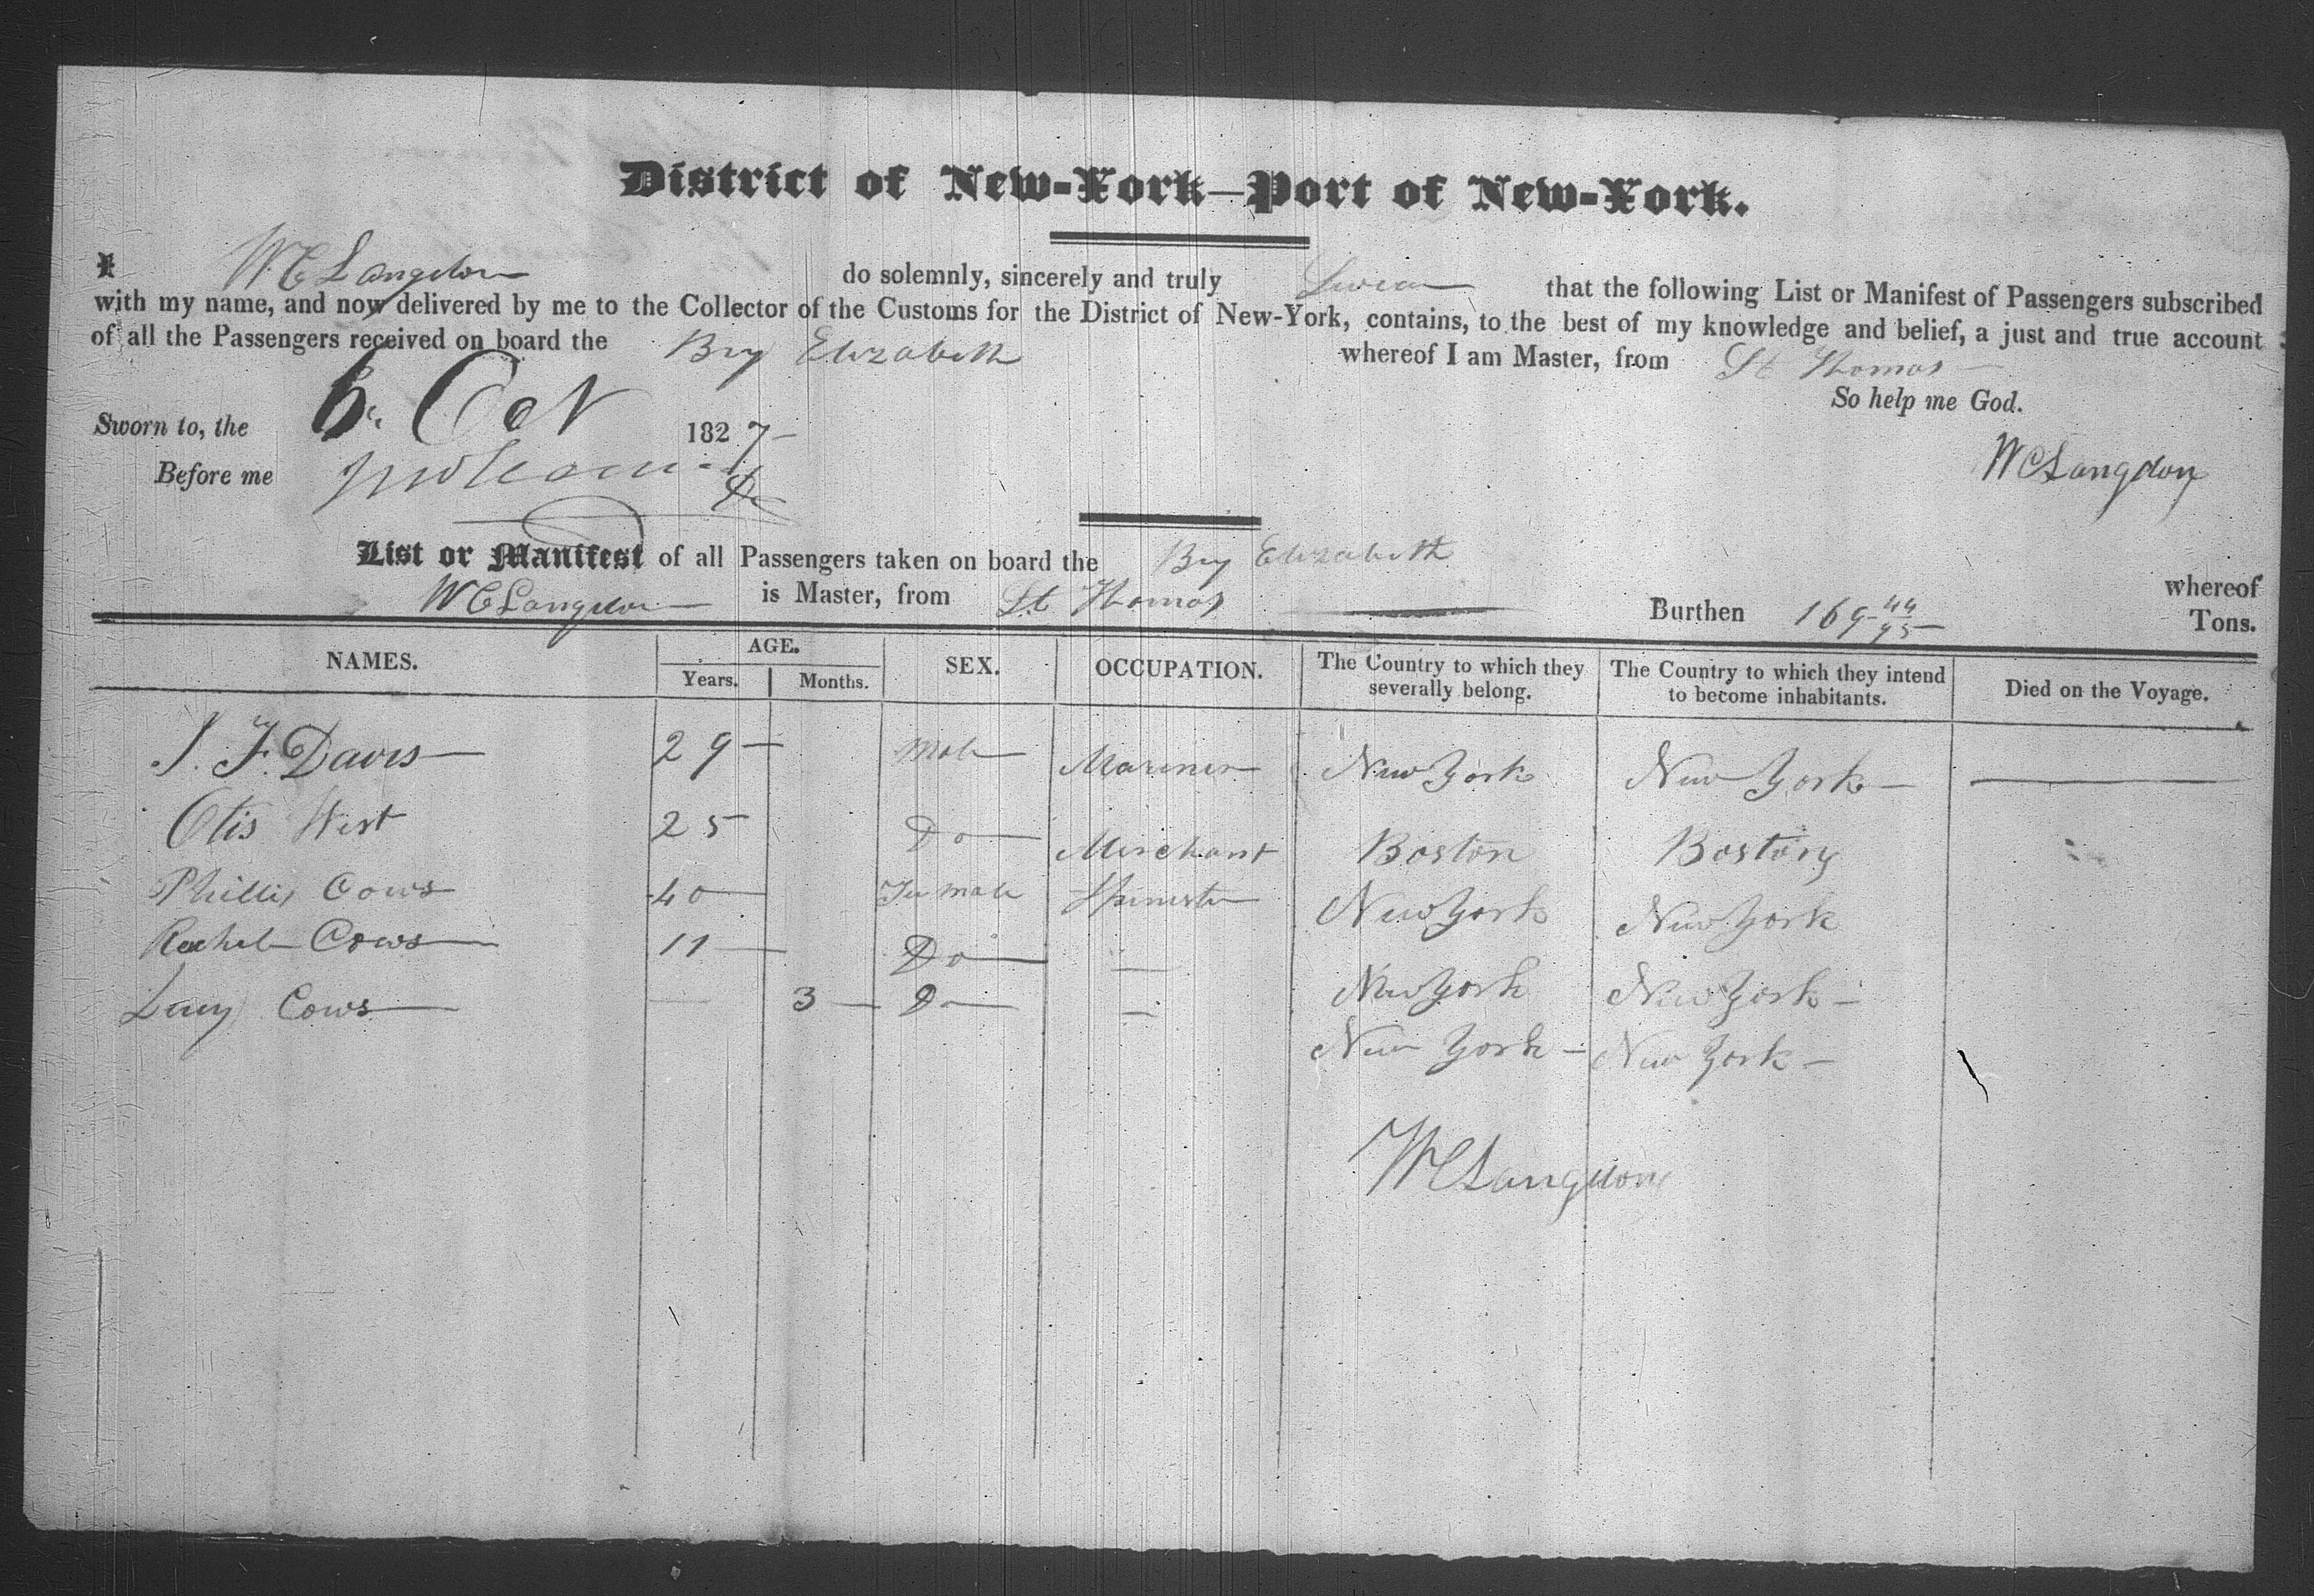 District of New-York—Port of New-York.
I W C Langdon do solemnly, sincerely and truly Swear that the following List or Manifest of Passengers subscribed
with my name, and now delivered by me to the Collector of the Customs for the District of New-York, contains, to the best of my knowledge and belief, a just and true account
of all the Passengers received on board the Brig Elizabeth whereof I am Master, from St Thomas
So help me God.
Sworn to, the 6 Oct 1827
W C Langdon
Before me
List or Manifest of all Passengers taken on board the Brig Elizabeth whereof
W C Langdon is Master, from St Thomas Burthen 169 44/95 Tons.
NAMES. AGE. Years. Months. SEX. OCCUPATION. The Country to which they severally belong. The Country to which they intend to become inhabitants. Died on the Voyage.
J. F. Davis 29 Male Mariner New York New York
Otis West 25 Do Merchant Boston Boston
Phillis Cows 40 Female Spinster New York New York
Rachel Cows 11 Do — New York New York
Lucy Cows — 3 Do — New York New York
W C Langdon